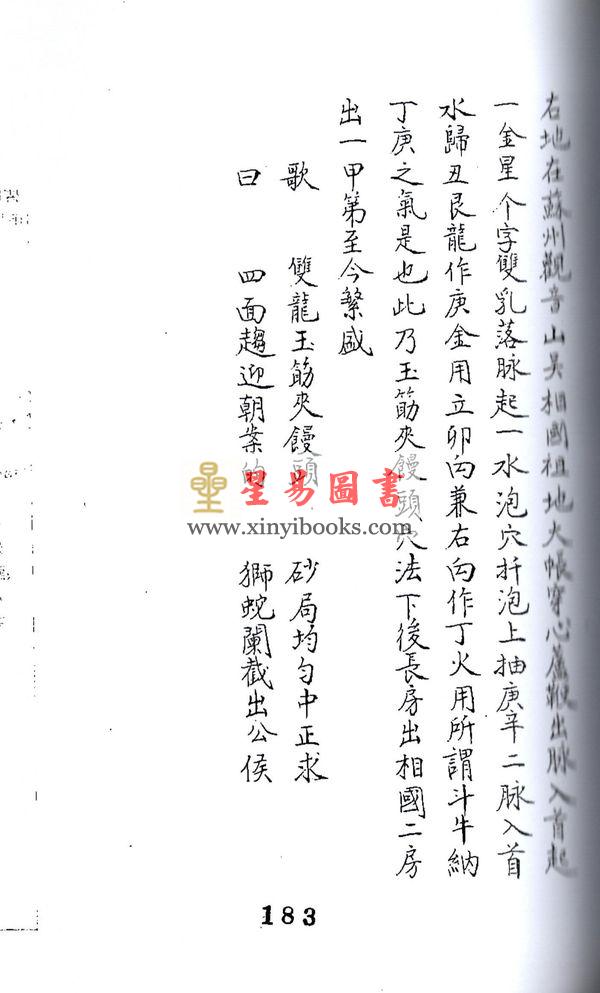 右地在蘇州觀音山吳相國祖地大帳穿心蘆鞭出脈入首起
一金星个字雙乳落脈起一水泡穴扦泡上抽庚辛二脈入首
水歸丑艮龍作庚金用立卯向兼右向作丁火用所謂斗牛納
丁庚之氣是也此乃玉筯夾饅頭穴法下後長房出相國二房
出一甲第至今繁盛
歌 雙龍玉筯夾饅頭 砂局均勻中正求
曰 四面趨迎朝案的 獅蛇闌截出公侯
星易圖書
www.xinyibooks.com
183